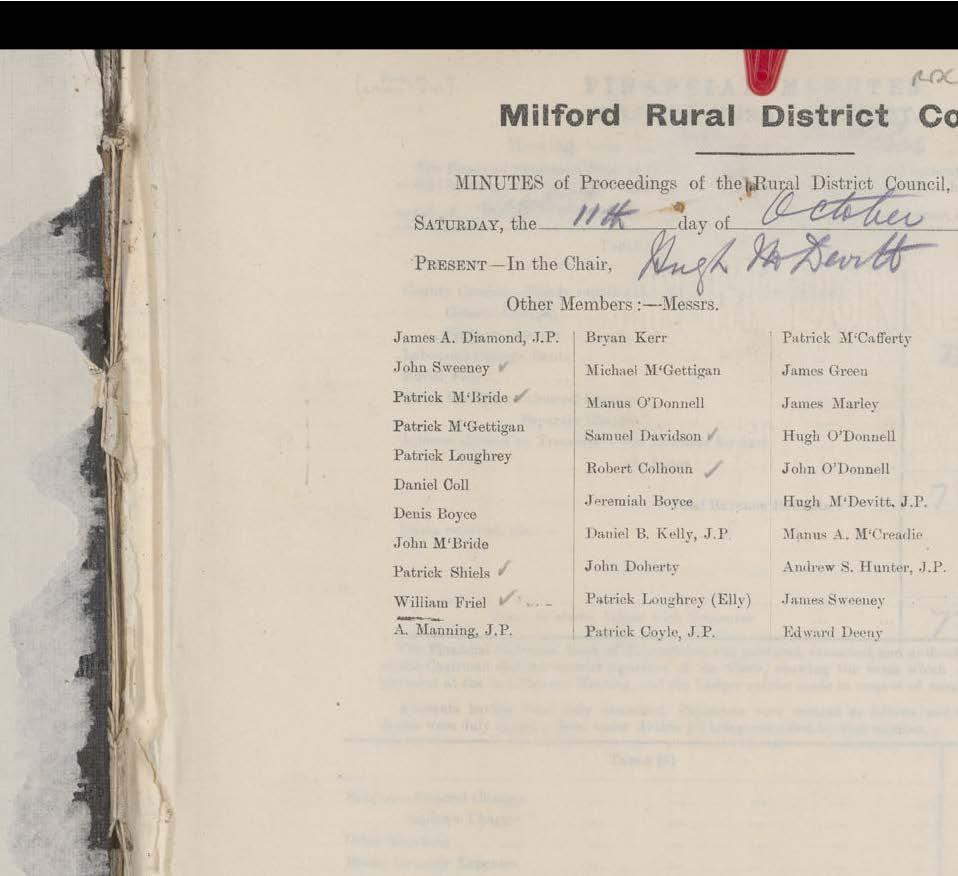 RDC
Milford Rural District Co
MINUTES of Proceedings of the Rural District Council,
SATURDAY, the 11th day of October
PRESENT—In the Chair, Hugh McDevitt
Other Members :—Messrs.
James A. Diamond, J.P.
John Sweeney ✓
Patrick M‘Bride ✓
Patrick M‘Gettigan
Patrick Loughrey
Daniel Coll
Denis Boyce
John M‘Bride
Patrick Shiels ✓
William Friel ✓
A. Manning, J.P.
Bryan Kerr
Michael M‘Gettigan
Manus O’Donnell
Samuel Davidson ✓
Robert Colhoun ✓
Jeremiah Boyce
Daniel B. Kelly, J.P.
John Doherty
Patrick Loughrey (Elly)
Patrick Coyle, J.P.
Patrick M‘Cafferty
James Green
James Marley
Hugh O’Donnell
John O’Donnell
Hugh M‘Devitt, J.P.
Manus A. M‘Creadie
Andrew S. Hunter, J.P.
James Sweeney
Edward Deeny